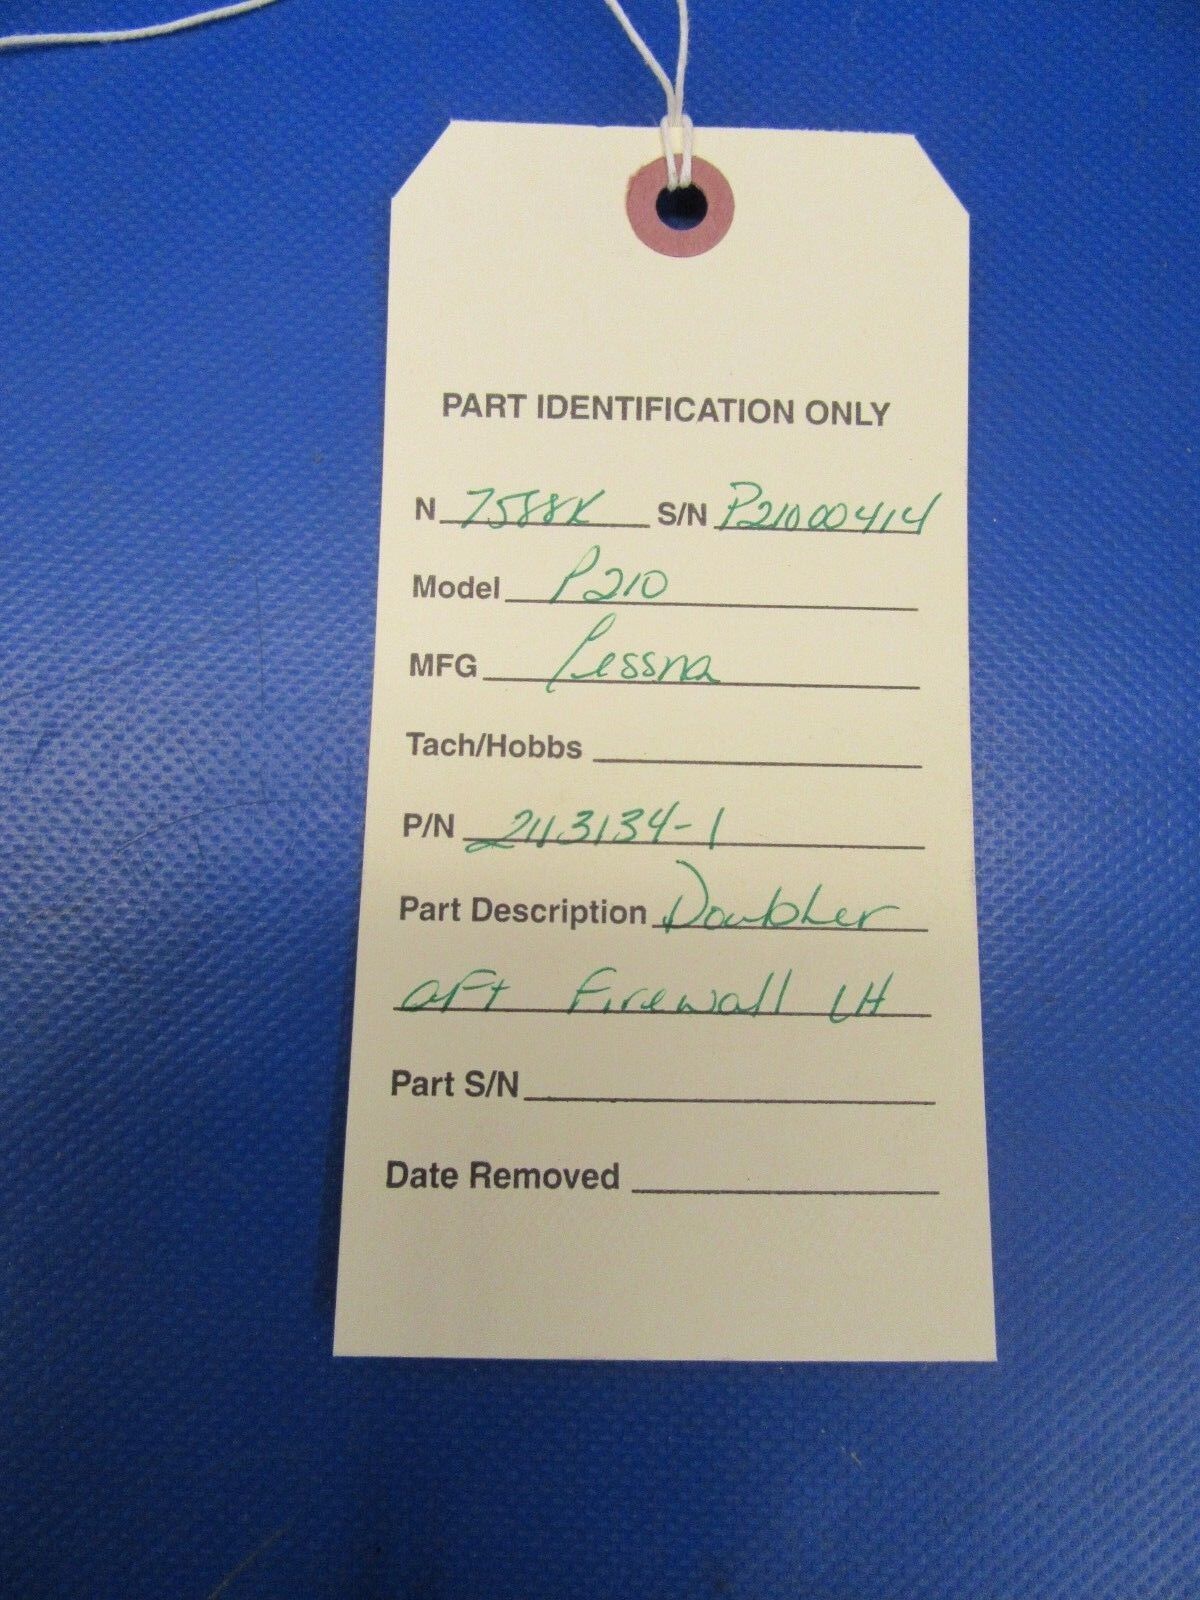 PART IDENTIFICATION ONLY
N 7588K S/N P21000414
Model P210
MFG Cessna
Tach/Hobbs
P/N 2113134-1
Part Description Doubler
aft Firewall LH
Part S/N
Date Removed